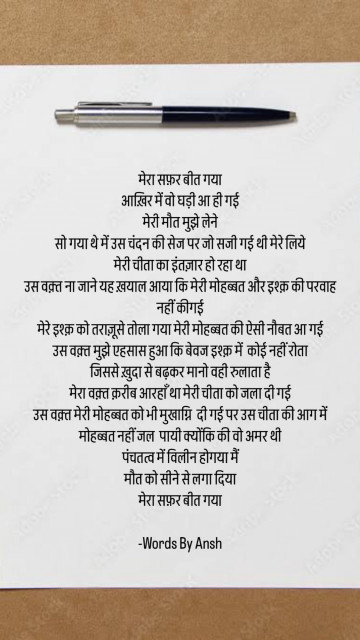 मेरा सफ़र बीत गया
आख़िर में वो घड़ी आ ही गई
मेरी मौत मुझे लेने
सो गया थे में उस चंदन की सेज पर जो सजी गई थी मेरे लिये
मेरी चीता का इंतज़ार हो रहा था
उस वक़्त ना जाने यह ख़याल आया कि मेरी मोहब्बत और इश्क़ की परवाह
नहीं कीगई
मेरे इश्क़ को तराज़ूसे तोला गया मेरी मोहब्बत की ऐसी नौबत आ गई
उस वक़्त मुझे एहसास हुआ कि बेवज इश्क़ में कोई नहीं रोता
जिससे ख़ुदा से बढ़कर मानो वही रुलाता है
मेरा वक़्त क़रीब आरहाँ था मेरी चीता को जला दी गई
उस वक़्त मेरी मोहब्बत को भी मुखाग्नि दी गई पर उस चीता की आग में
मोहब्बत नहीं जल पायी क्योंकि की वो अमर थी
पंचतत्व में विलीन होगया मैं
मौत को सीने से लगा दिया
मेरा सफ़र बीत गया
-Words By Ansh